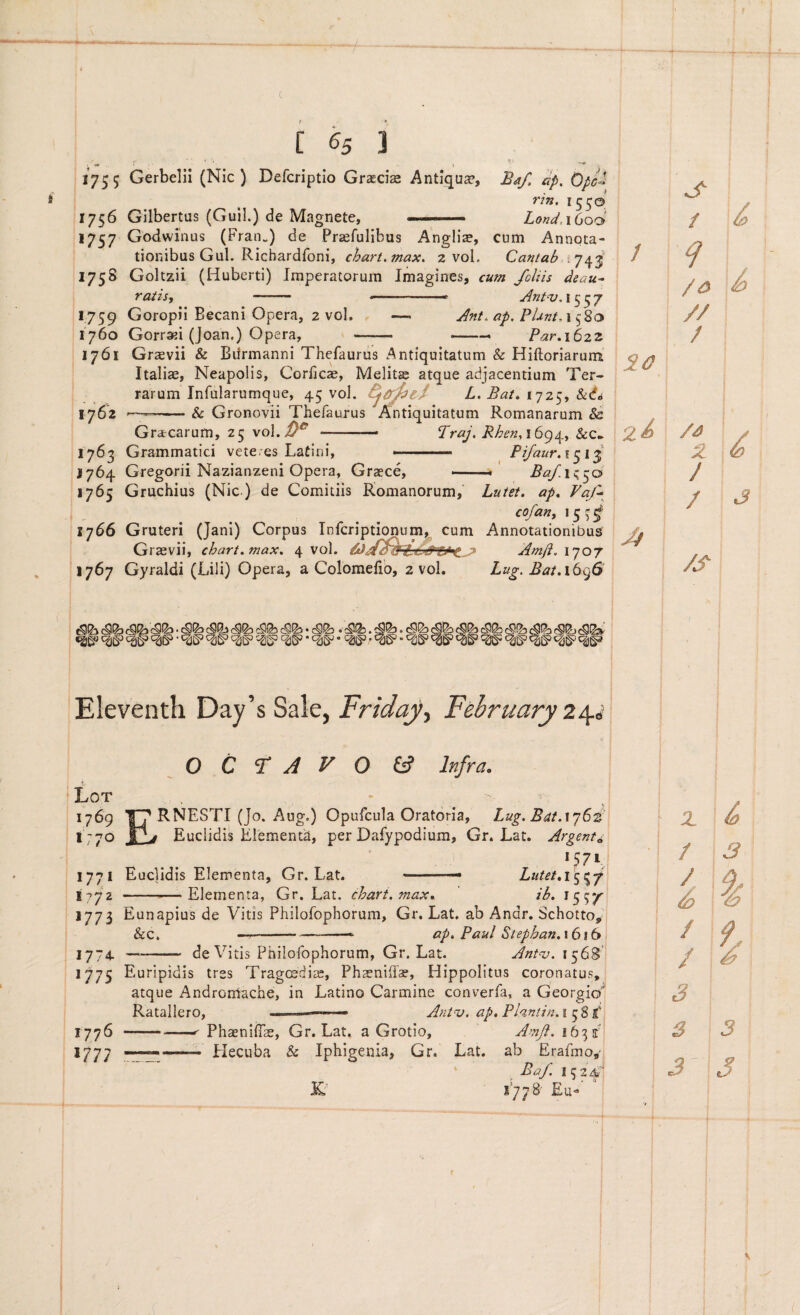 [ 65 ]
1755 Gerbelii (Nic ) Deſcriptio Græciæ Antiquæ, Baſ. ap. Opo-
rin. 1550 5
1756 Gilbertus (Guil.) de Magnete, ——— Lond. 1600 1 6
1757 Godwinus (Fran.) de Præſulibus Angliæ, cum Annota-
tionibus Gul. Richardſoni, chart. max. 2 vol. Cantab 1743 1 9
1758 Goltzii (Huberti) Imperatorum Imagines, cum foliis deau-
ratis, —— ——— Antv. 1557 10 6
1759 Goropii Becani Opera, 2 vol. — Ant. ap. Plant. 1580 11
1760 Gorræi (Joan.) Opera, —— —— Par. 1622 1
1761 Grævii & Burmanni Theſaurus Antiquitatum & Hiſtoriarum
Italiæ, Neapolis, Corſicæ, Melitæ atque adjacentium Ter-
rarum Inſularumque, 45 vol. L. Bat. 1725, &c. 20
1762 ——— & Gronovii Theſaurus Antiquitatum Romanarum &
Græcarum, 25 vol. Do ——— Traj. Rhen, 1694, &c. 26 10
1763 Grammatici veteres Latini, ——— Piſaur. 1513 2 6
1764 Gregorii Nazianzeni Opera, Græcé, ——— Baſ. 1550 1
1765 Gruchius (Nic.) de Comitiis Romanorum, Lutet. ap. Vaſ-
coſan, 1555 1 3
1766 Gruteri (Jani) Corpus Inſcriptionum, cum Annotationibus
Grævii, chart. max. 4 vol. Amſt. 1707 4
1767 Gyraldi (Lili) Opera, a Colomeſio, 2 vol. Lug. Bat. 1696 15
Eleventh Day's Sale, Friday, February 24.
OCTAVO & Infra.
Lot
1769 ERNESTI (Jo. Aug.) Opuſcula Oratoria, Lug. Bat. 1762 2 6
1770 Euclidis Elementa, per Daſypodium, Gr. Lat. Argent.
1571 1 3
1771 Euclidis Elementa, Gr. Lat. ——— Lutet. 1557 1 9
1772 ——— Elementa, Gr. Lat. chart. max. ib. 1557 6 6
1773 Eunapius de Vitis Philoſophorum, Gr. Lat. ab Andr. Schotto,
&c. ——— ——— ap. Paul Stephan. 1616 1 9
1774 ——— de Vitis Philoſophorum, Gr. Lat. Antv. 1568 1 6
1775 Euripidis tres Tragœdiæ, Phæniſſæ, Hippolitus coronatus,
atque Andromache, in Latino Carmine converſa, a Georgio
Ratallero, ——— Antv. ap. Plantin. 1581 3
1776 ——— —— Phæniſſæ, Gr. Lat. a Grotio, Amſt. 1631 3 3
1777 ——— —— Hecuba & Iphigenia, Gr. Lat. ab Eraſmo,
Baſ. 1524 3 3
K 1778 Eu-